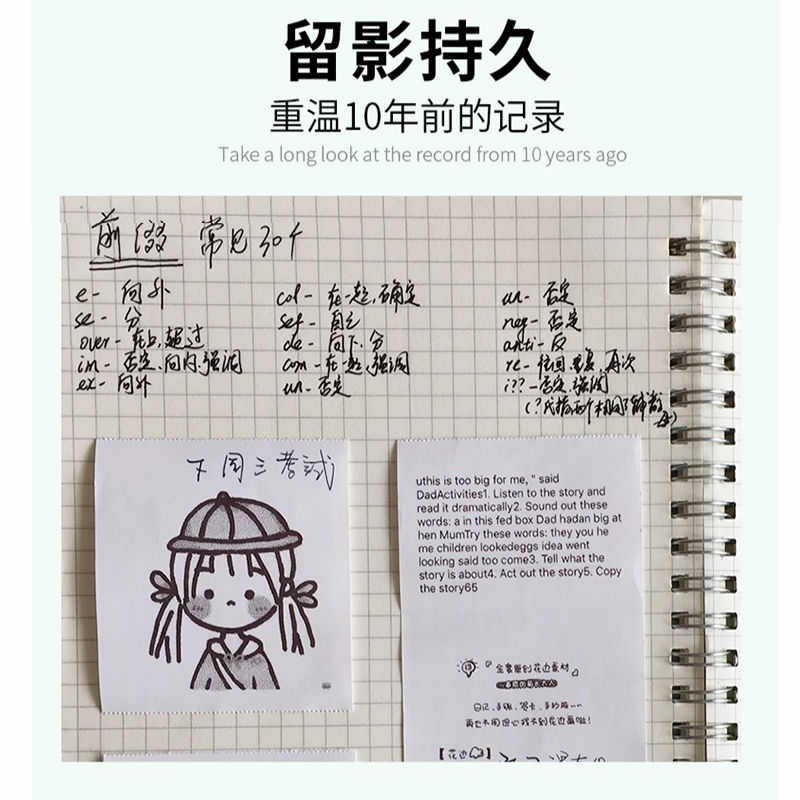 留影持久
重温10年前的记录
Take a long look at the record from 10 years ago
前缀 常见30个
e- 向外
col- 在一起,确定
un- 否定
se- 分
sef- 自己
neg- 否定
over- 在上,超过
de- 向下,分
anti- 反
im- 否定,向内,强调
con- 在一起,强调
re- 往回,重复,再次
ex- 向外
un- 否定
i??- 否定,强调
下周三考試
uthis is too big for me, " said
DadActivities1. Listen to the story and
read it dramatically2. Sound out these
words: a in this fed box Dad hadan big at
hen MumTry these words: they you he
me children lookedeggs idea went
looking said too come3. Tell what the
story is about4. Act out the story5. Copy
the story65
全套原创花边素材
日记、手账、贺卡、手抄报~~
再也不用担心找不到花边画啦!
【花边】